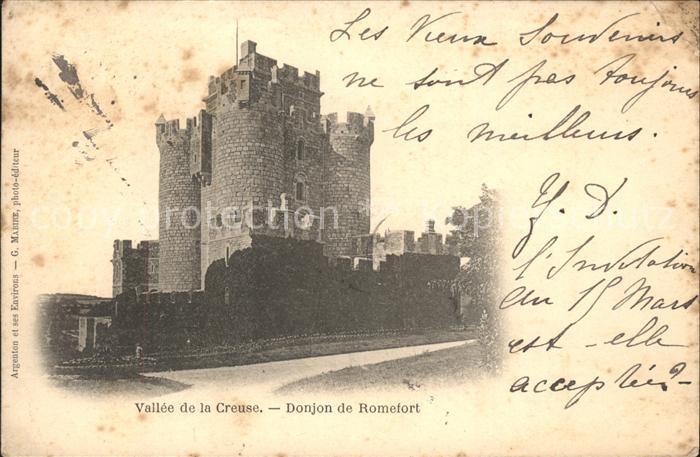 Les Vieux Souvenirs
ne sont pas toujours
les meilleurs.
Y. D.
l'Invitation
du 15 Mars
est-elle
acceptée?
Argenton et ses Environs — G. Mabire, photo-éditeur
Vallée de la Creuse. — Donjon de Romefort